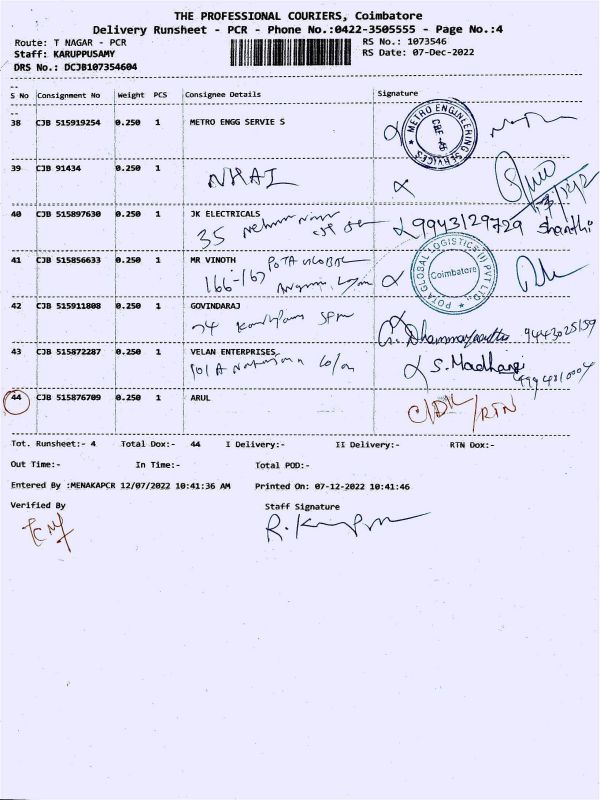 THE PROFESSIONAL COURIERS, Coimbatore
Delivery Runsheet - PCR - Phone No.:0422-3505555 - Page No.:4
Route: T NAGAR - PCR
RS No.: 1073546
Staff: KARUPPUSAMY
RS Date: 07-Dec-2022
DRS No.: DCJB107354604
S No Consignment No Weight PCS Consignee Details Signature
38 CJB 515919254 0.250 1 METRO ENGG SERVIE S
METRO ENGINEERING SERVICES
39 CJB 91434 0.250 1
NHAI
40 CJB 515897630 0.250 1 JK ELECTRICALS
35
9943129729 Shanthi
41 CJB 515856633 0.250 1 MR VINOTH
POTA GLOBAL
166-167
POTA GLOBAL LOGISTICS (I) PVT LTD.,
Coimbatore
42 CJB 515911808 0.250 1 GOVINDARAJ
74
9443025159
43 CJB 515872287 0.250 1 VELAN ENTERPRISES
S. Madhangi
44 CJB 515876709 0.250 1 ARUL
RTN
Tot. Runsheet:- 4 Total Dox:- 44 I Delivery:- II Delivery:- RTN Dox:-
Out Time:- In Time:- Total POD:-
Entered By :MENAKAPCR 12/07/2022 10:41:36 AM Printed On: 07-12-2022 10:41:46
Verified By Staff Signature